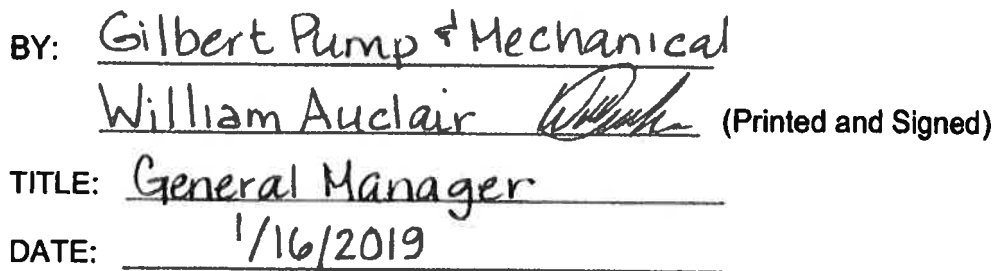 BY: Gilbert Pump & Mechanical
William Auclair (Printed and Signed)
TITLE: General Manager
DATE: 1/16/2019